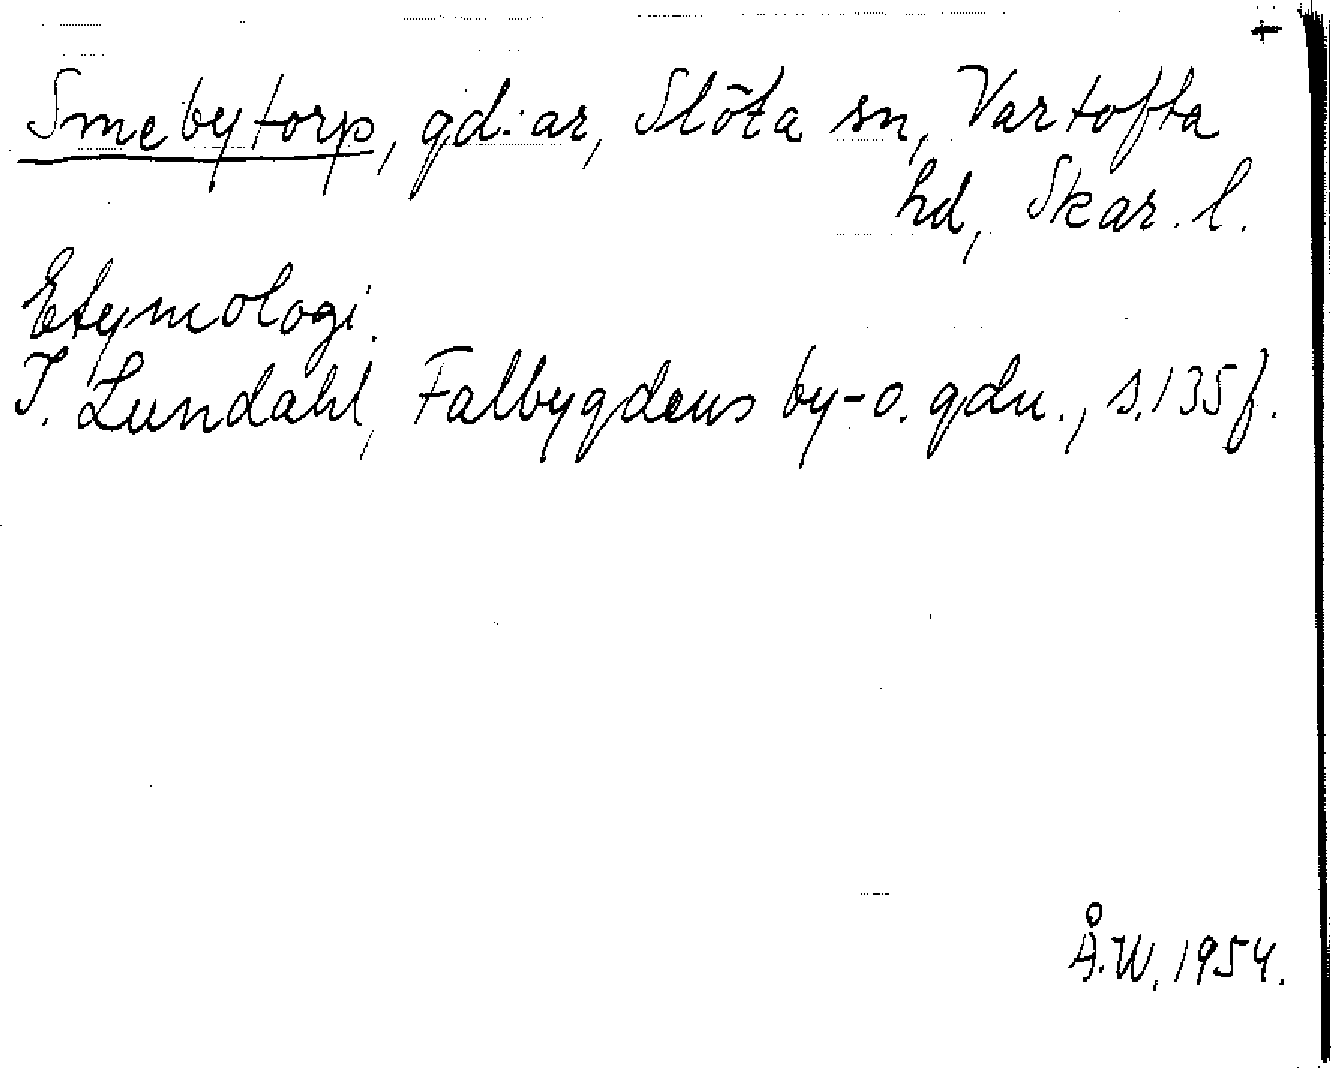 +
Smebytorp, gd:ar, Slöta sn, Vartofta
hd, Skar. l.
Etymologi.
I. Lundahl, Falbygdens by- o. gdn., s. 135 f.
Å.W. 1954.